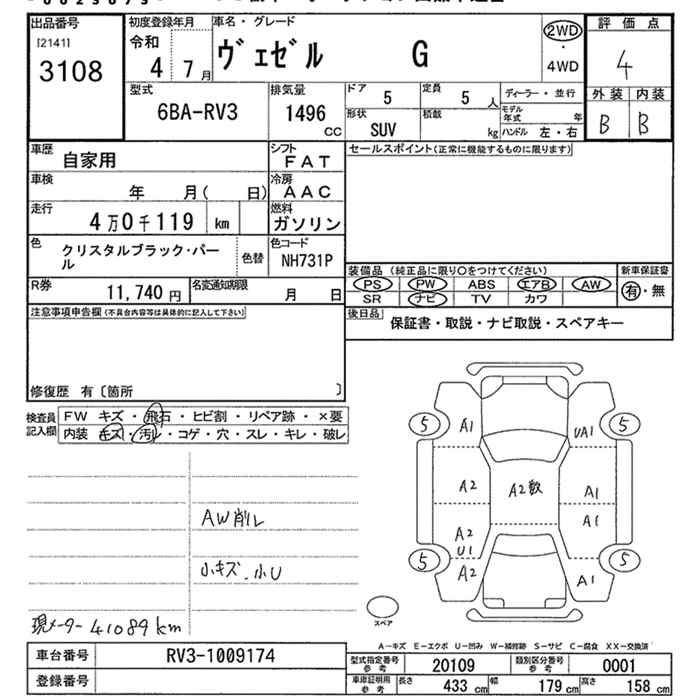 出品番号
[2141]
3108
初度登録年月
令和
4 7月
車名・グレード
ヴェゼル G
2WD
・
4WD
評価点
4
外装 内装
B B
型式
6BA-RV3
排気量
1496
CC
ドア
5
定員
5人
形状
SUV
積載
kg
ディーラー・並行
モデル年式 年
ハンドル 左・右
車歴
自家用
シフト
FAT
車検
年 月( 日)
冷房
AAC
走行
4万0千119 km
燃料
ガソリン
色
クリスタルブラック・パール
色替
色コード
NH731P
R券
11,740円
名変通知期限
月 日
セールスポイント(正常に機能するものに限ります)
装備品 (純正品に限り○をつけてください)
PS PW ABS エアB AW
SR ナビ TV カワ
新車保証書
有・無
後日品
保証書・取説・ナビ取説・スペアキー
注意事項申告欄(不具合内容等は具体的に記入して下さい)
修復歴 有〔箇所 〕
検査員記入欄
FW キズ・飛石・ヒビ割・リペア跡・×要
内装 キズ・汚レ・コゲ・穴・スレ・キレ・破レ
AW削レ
小キズ.小U
現メーター 41089km
5 A1 UA1 5
A2 A2数 A1
A1
A2
U1
5 A2 A1 5
スペア
A−キズ E−エクボ U−凹み W−補修跡 S−サビ C−腐食 XX−交換済
車台番号
RV3-1009174
登録番号
型式指定番号
参考
20109
類別区分番号
参考
0001
車庫証明用
参考
長さ 433cm 幅 179cm 高さ 158cm